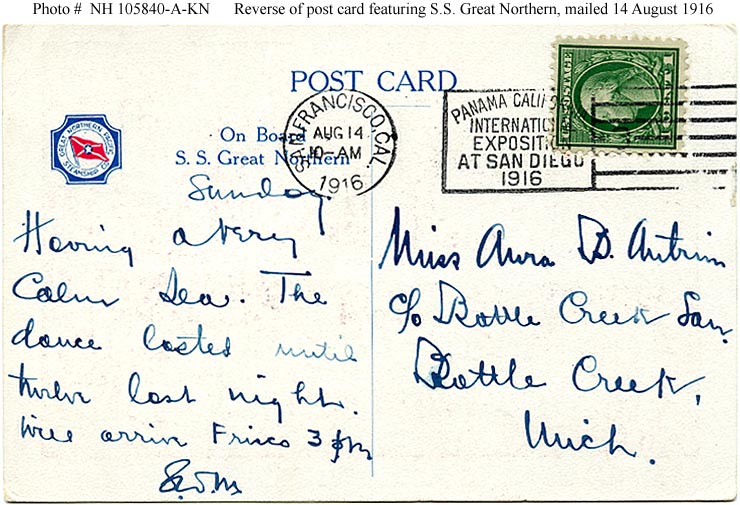 Photo # NH 105840-A-KN Reverse of post card featuring S.S. Great Northern, mailed 14 August 1916
POST CARD
GREAT NORTHERN PACIFIC
STEAMSHIP CO.
On Board
S. S. Great Northern
SAN FRANCISCO, CAL.
AUG 14
10-AM
1916
PANAMA CALIFO
INTERNATIO
EXPOSITIO
AT SAN DIEGO
1916
POSTAGE
1 CENT 1
Sunday
Having a very
Calm Sea. The
dance lasted until
twelve last night.
Will arrive Frisco 3 pm
Miss Aura B. Antrim
c/o Battle Creek San.
Battle Creek,
Mich.